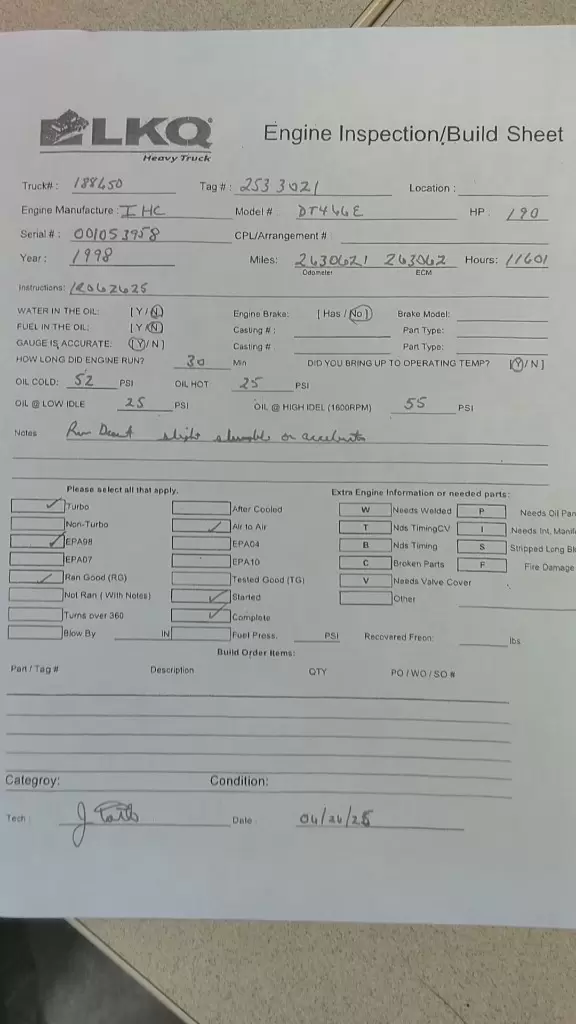 LKQ
Heavy Truck
Engine Inspection/Build Sheet
Truck# : 188650 Tag # : 253 3021 Location :
Engine Manufacture : IHC Model # DT466E HP : 190
Serial # : 001053958 CPL/Arrangement #
Year : 1998 Miles: 2630621 263062 Hours: 11601
Odometer ECM
Instructions:
WATER IN THE OIL: [ Y / N ] Engine Brake: [ Has / No ] Brake Model:
FUEL IN THE OIL: [ Y / N ] Casting # : Part Type:
GAUGE IS ACCURATE: [ Y / N ] Casting # Part Type:
HOW LONG DID ENGINE RUN? 30 Min DID YOU BRING UP TO OPERATING TEMP? [ Y / N ]
OIL COLD: 52 PSI OIL HOT 25 PSI
OIL @ LOW IDLE 25 PSI OIL @ HIGH IDEL (1600RPM) 55 PSI
Notes Run slight on
Please select all that apply. Extra Engine Information or needed parts:
Turbo After Cooled W Needs Welded P Needs Oil Pan
Non-Turbo Air to Air T Nds TimingCV I Needs Int. Manif
EPA98 EPA04 B Nds Timing S Stripped Long Bl
EPA07 EPA10 C Broken Parts F Fire Damage
Ran Good (RG) Tested Good (TG) V Needs Valve Cover
Not Ran ( With Notes) Started Other
Turns over 360 Complete
Blow By IN Fuel Press. PSI Recovered Freon: lbs
Build Order Items:
Part / Tag # Description QTY PO / WO / SO #
Categroy: Condition:
Tech : Date : 04/26/25